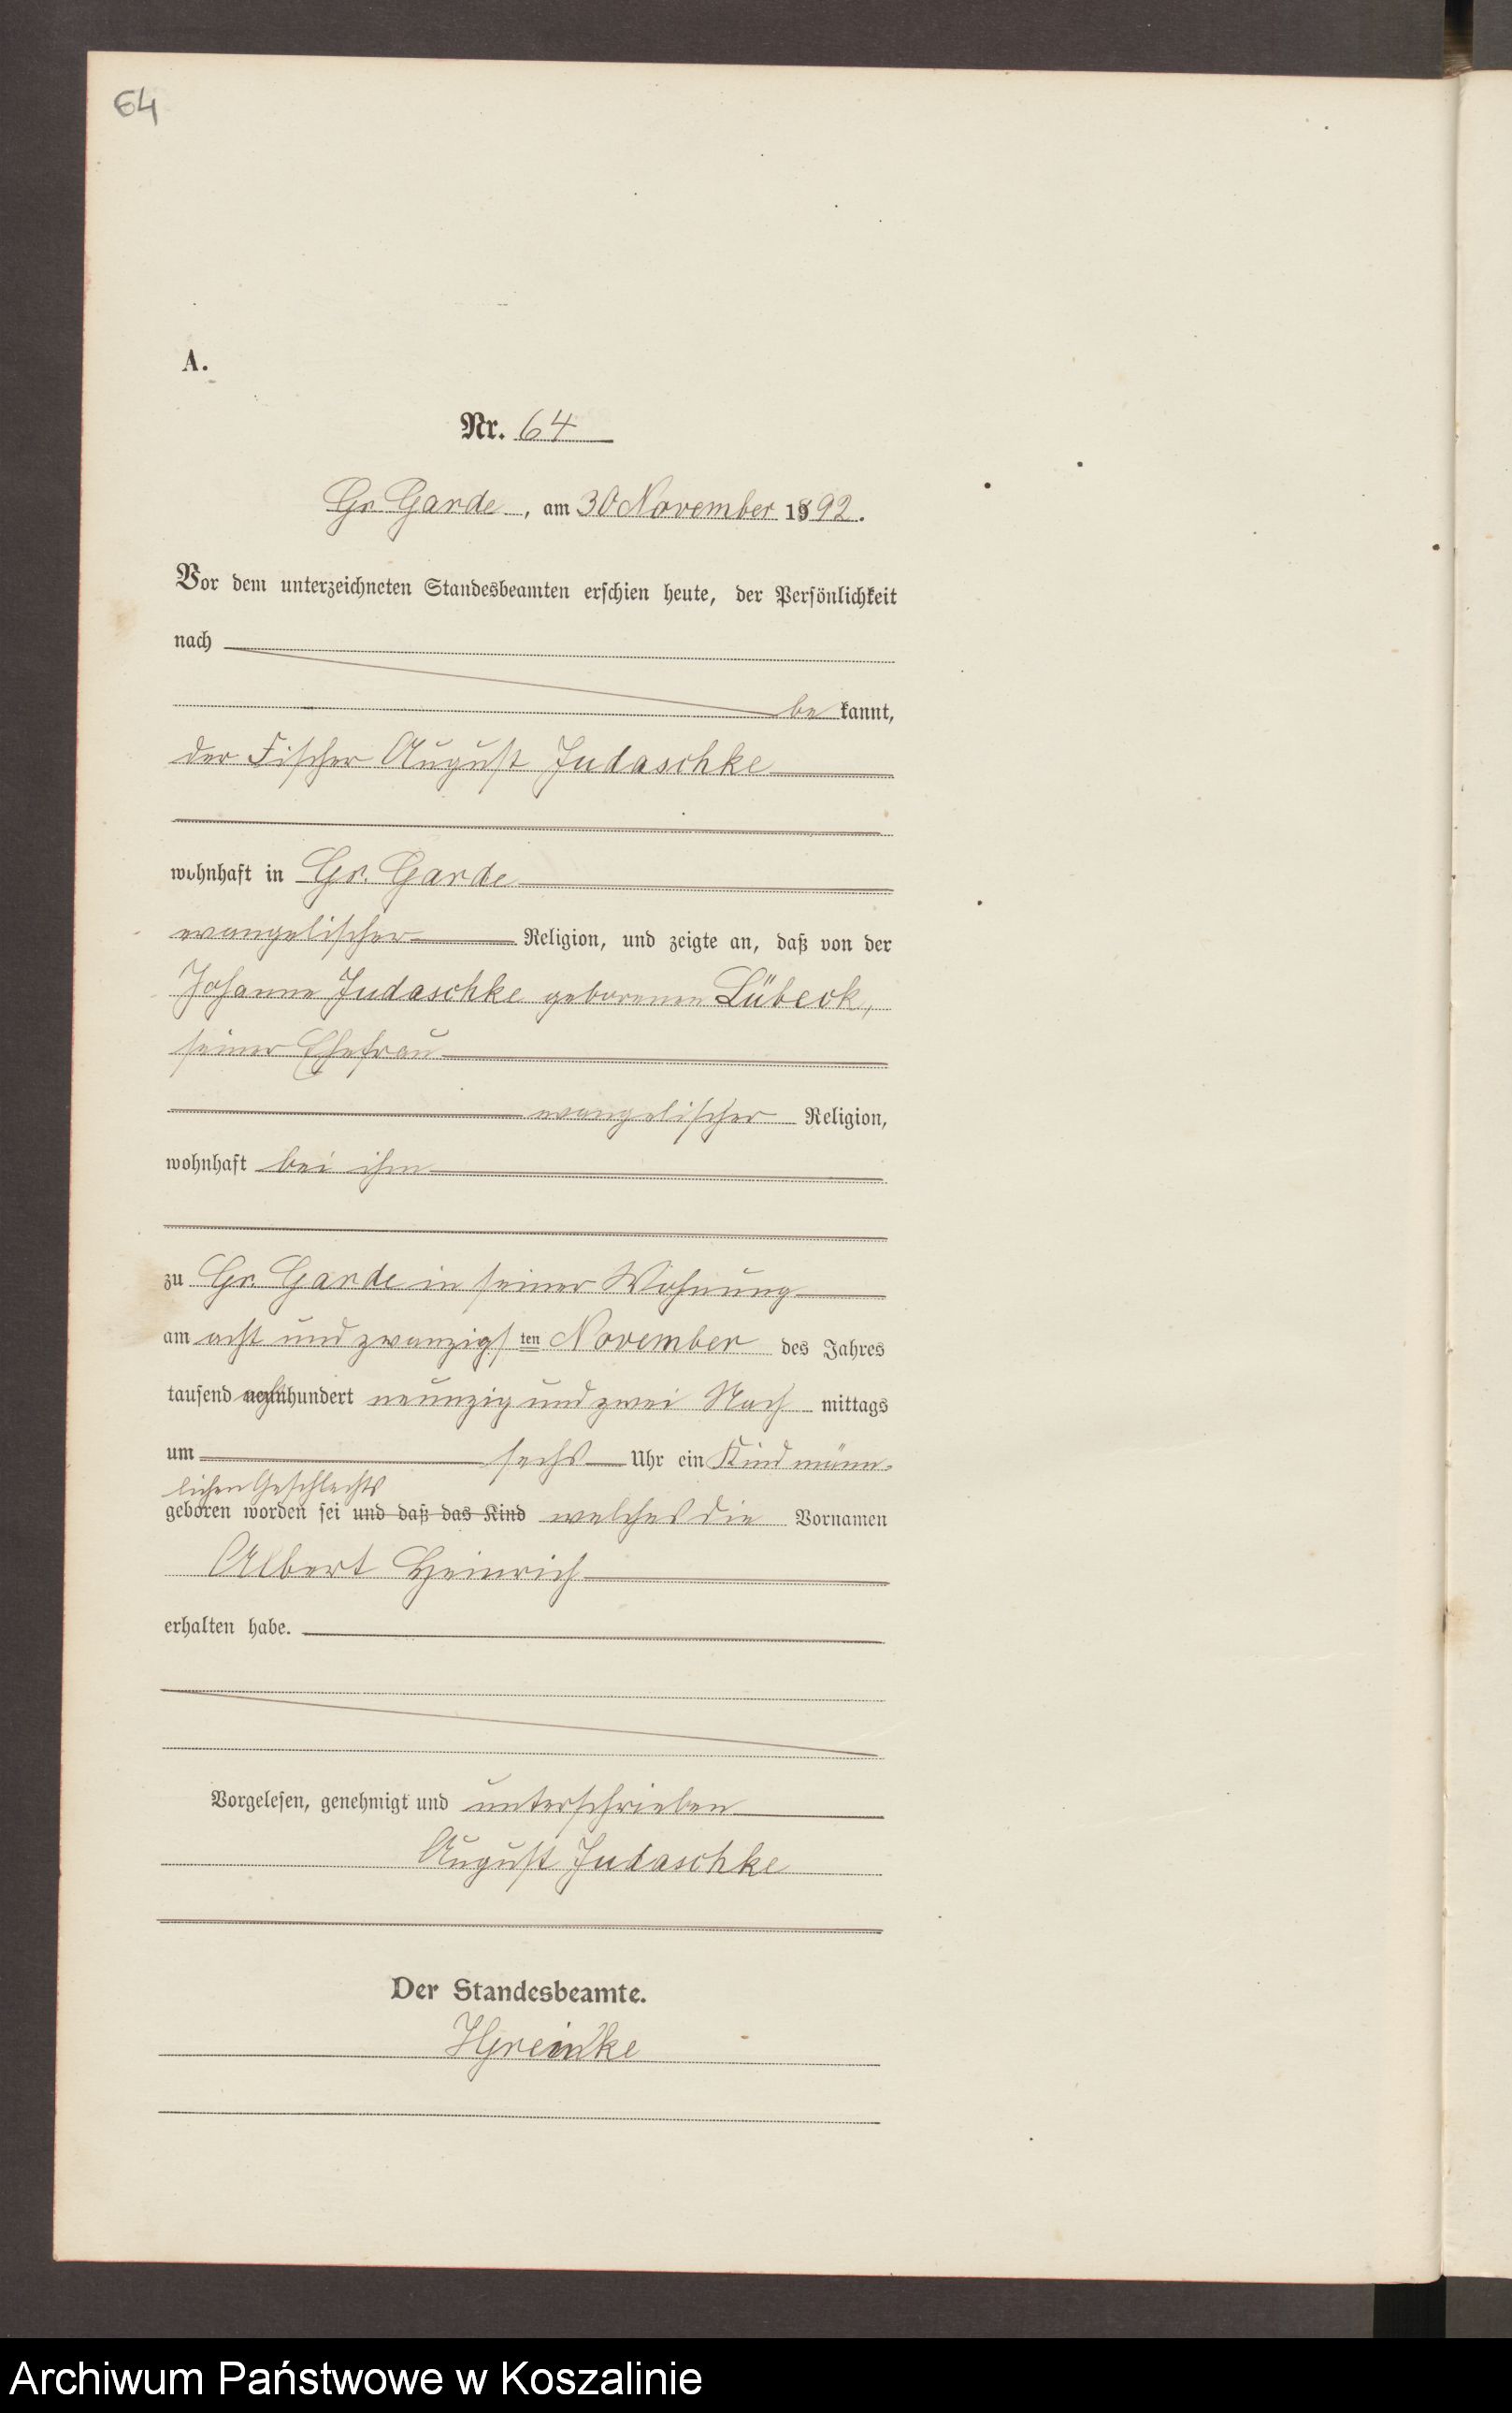 64
A.
Nr. 64
Gr. Garde, am 30 November 1892.
Vor dem unterzeichneten Standesbeamten erschien heute, der Persönlichkeit
nach
be kannt,
der Fischer August Judaschke
wohnhaft in Gr. Garde
evangelischer Religion, und zeigte an, daß von der
Johanne Judaschke geborenen Lübeck,
seiner Ehefrau
evangelischer Religion,
wohnhaft bei ihm
zu Gr. Garde in seiner Wohnung
am acht und zwanzigsten November des Jahres
tausend achthundert neunzig und zwei Nach mittags
um sechs Uhr ein Kind männ-
lichen Geschlechts
geboren worden sei und daß das Kind welches die Vornamen
Albert Heinrich
erhalten habe.
Vorgelesen, genehmigt und unterschrieben
August Judaschke
Der Standesbeamte.
HGreinke
Archiwum Państwowe w Koszalinie